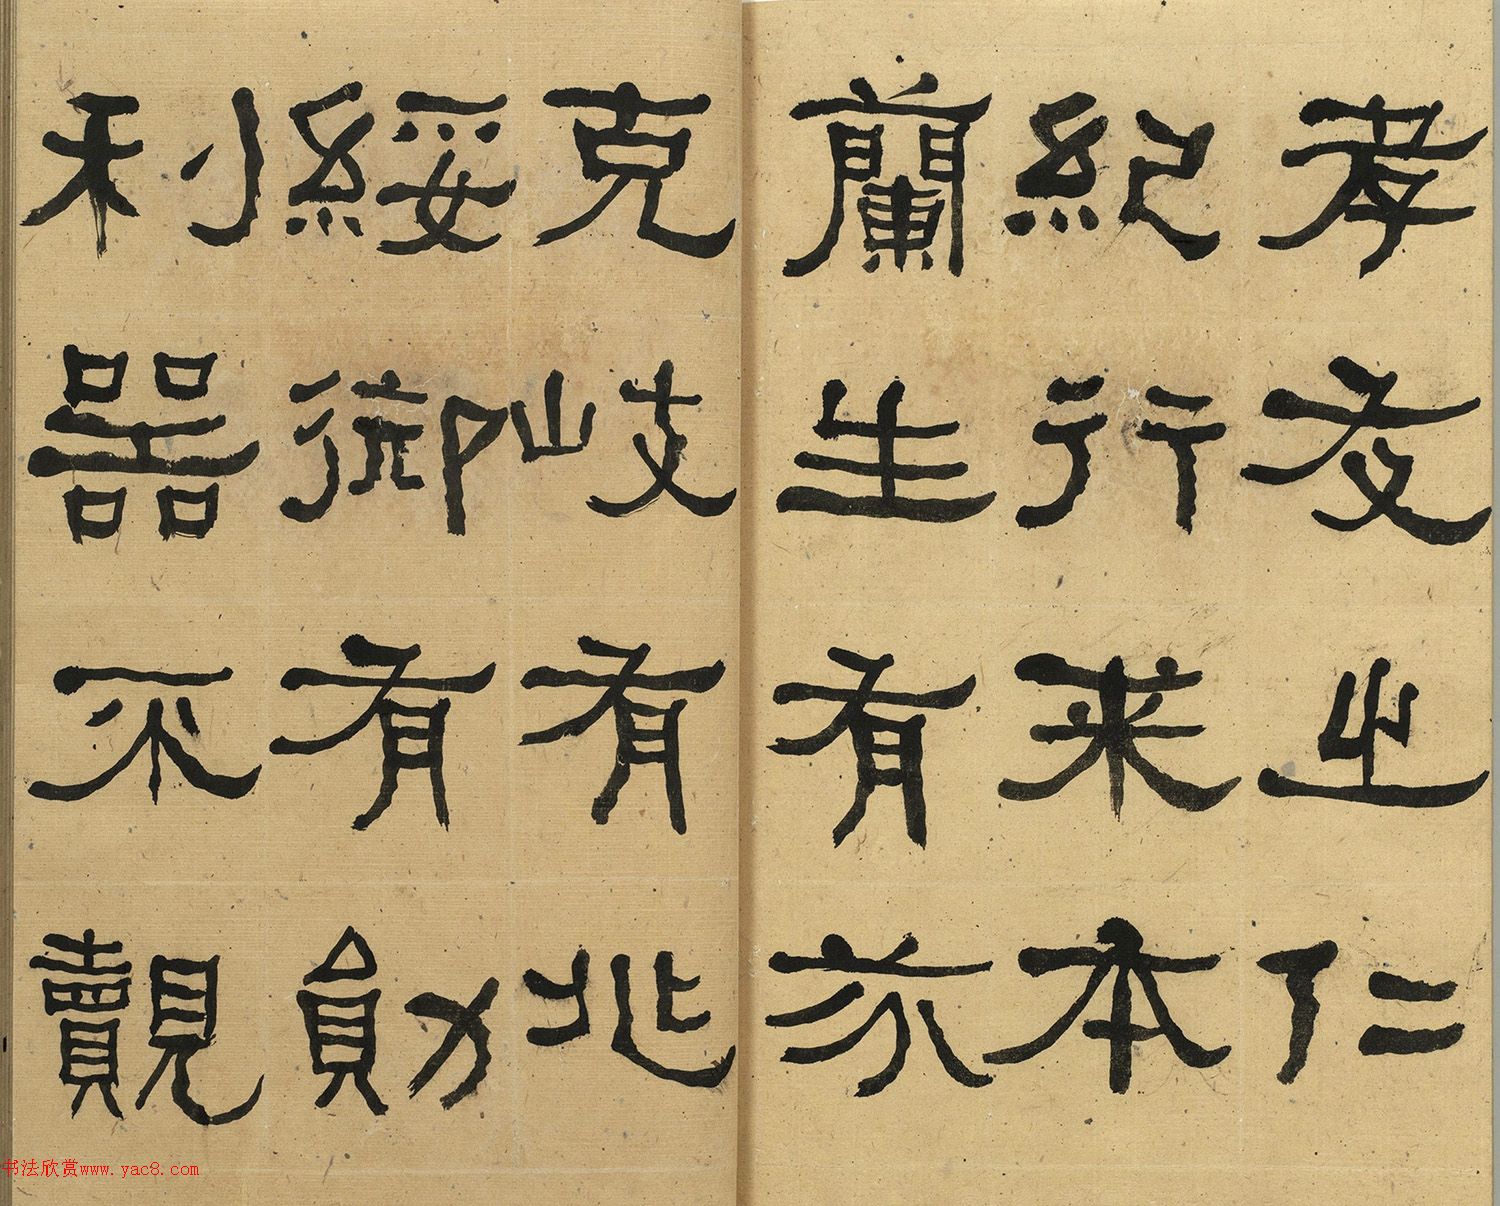 孝友之仁
紀行来本
蘭生有芬
克岐有兆
綏御有勛
利器不覿
书法欣赏www.yac8.com